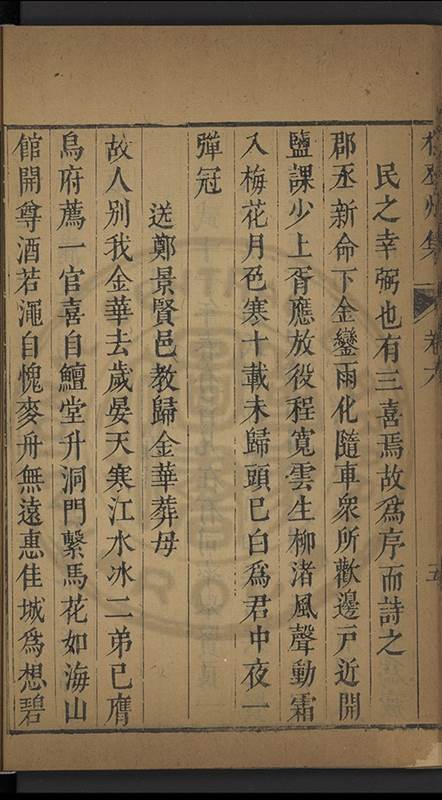 卷六
五
民之幸弼也有三喜焉故爲序而詩之
郡丞新命下金鑾雨化隨車衆所歡邊戸近開
鹽課少上胥應放役程寬雲生柳渚風聲動霜
入梅花月色寒十載未歸頭已白爲君中夜一
彈冠
送鄭景賢邑教歸金華葬母
故人別我金華去歲晏天寒江水冰二弟已膺
烏府薦一官喜自鱣堂升洞門繫馬花如海山
館開尊酒若澠自愧麥舟無遠惠佳城爲想碧